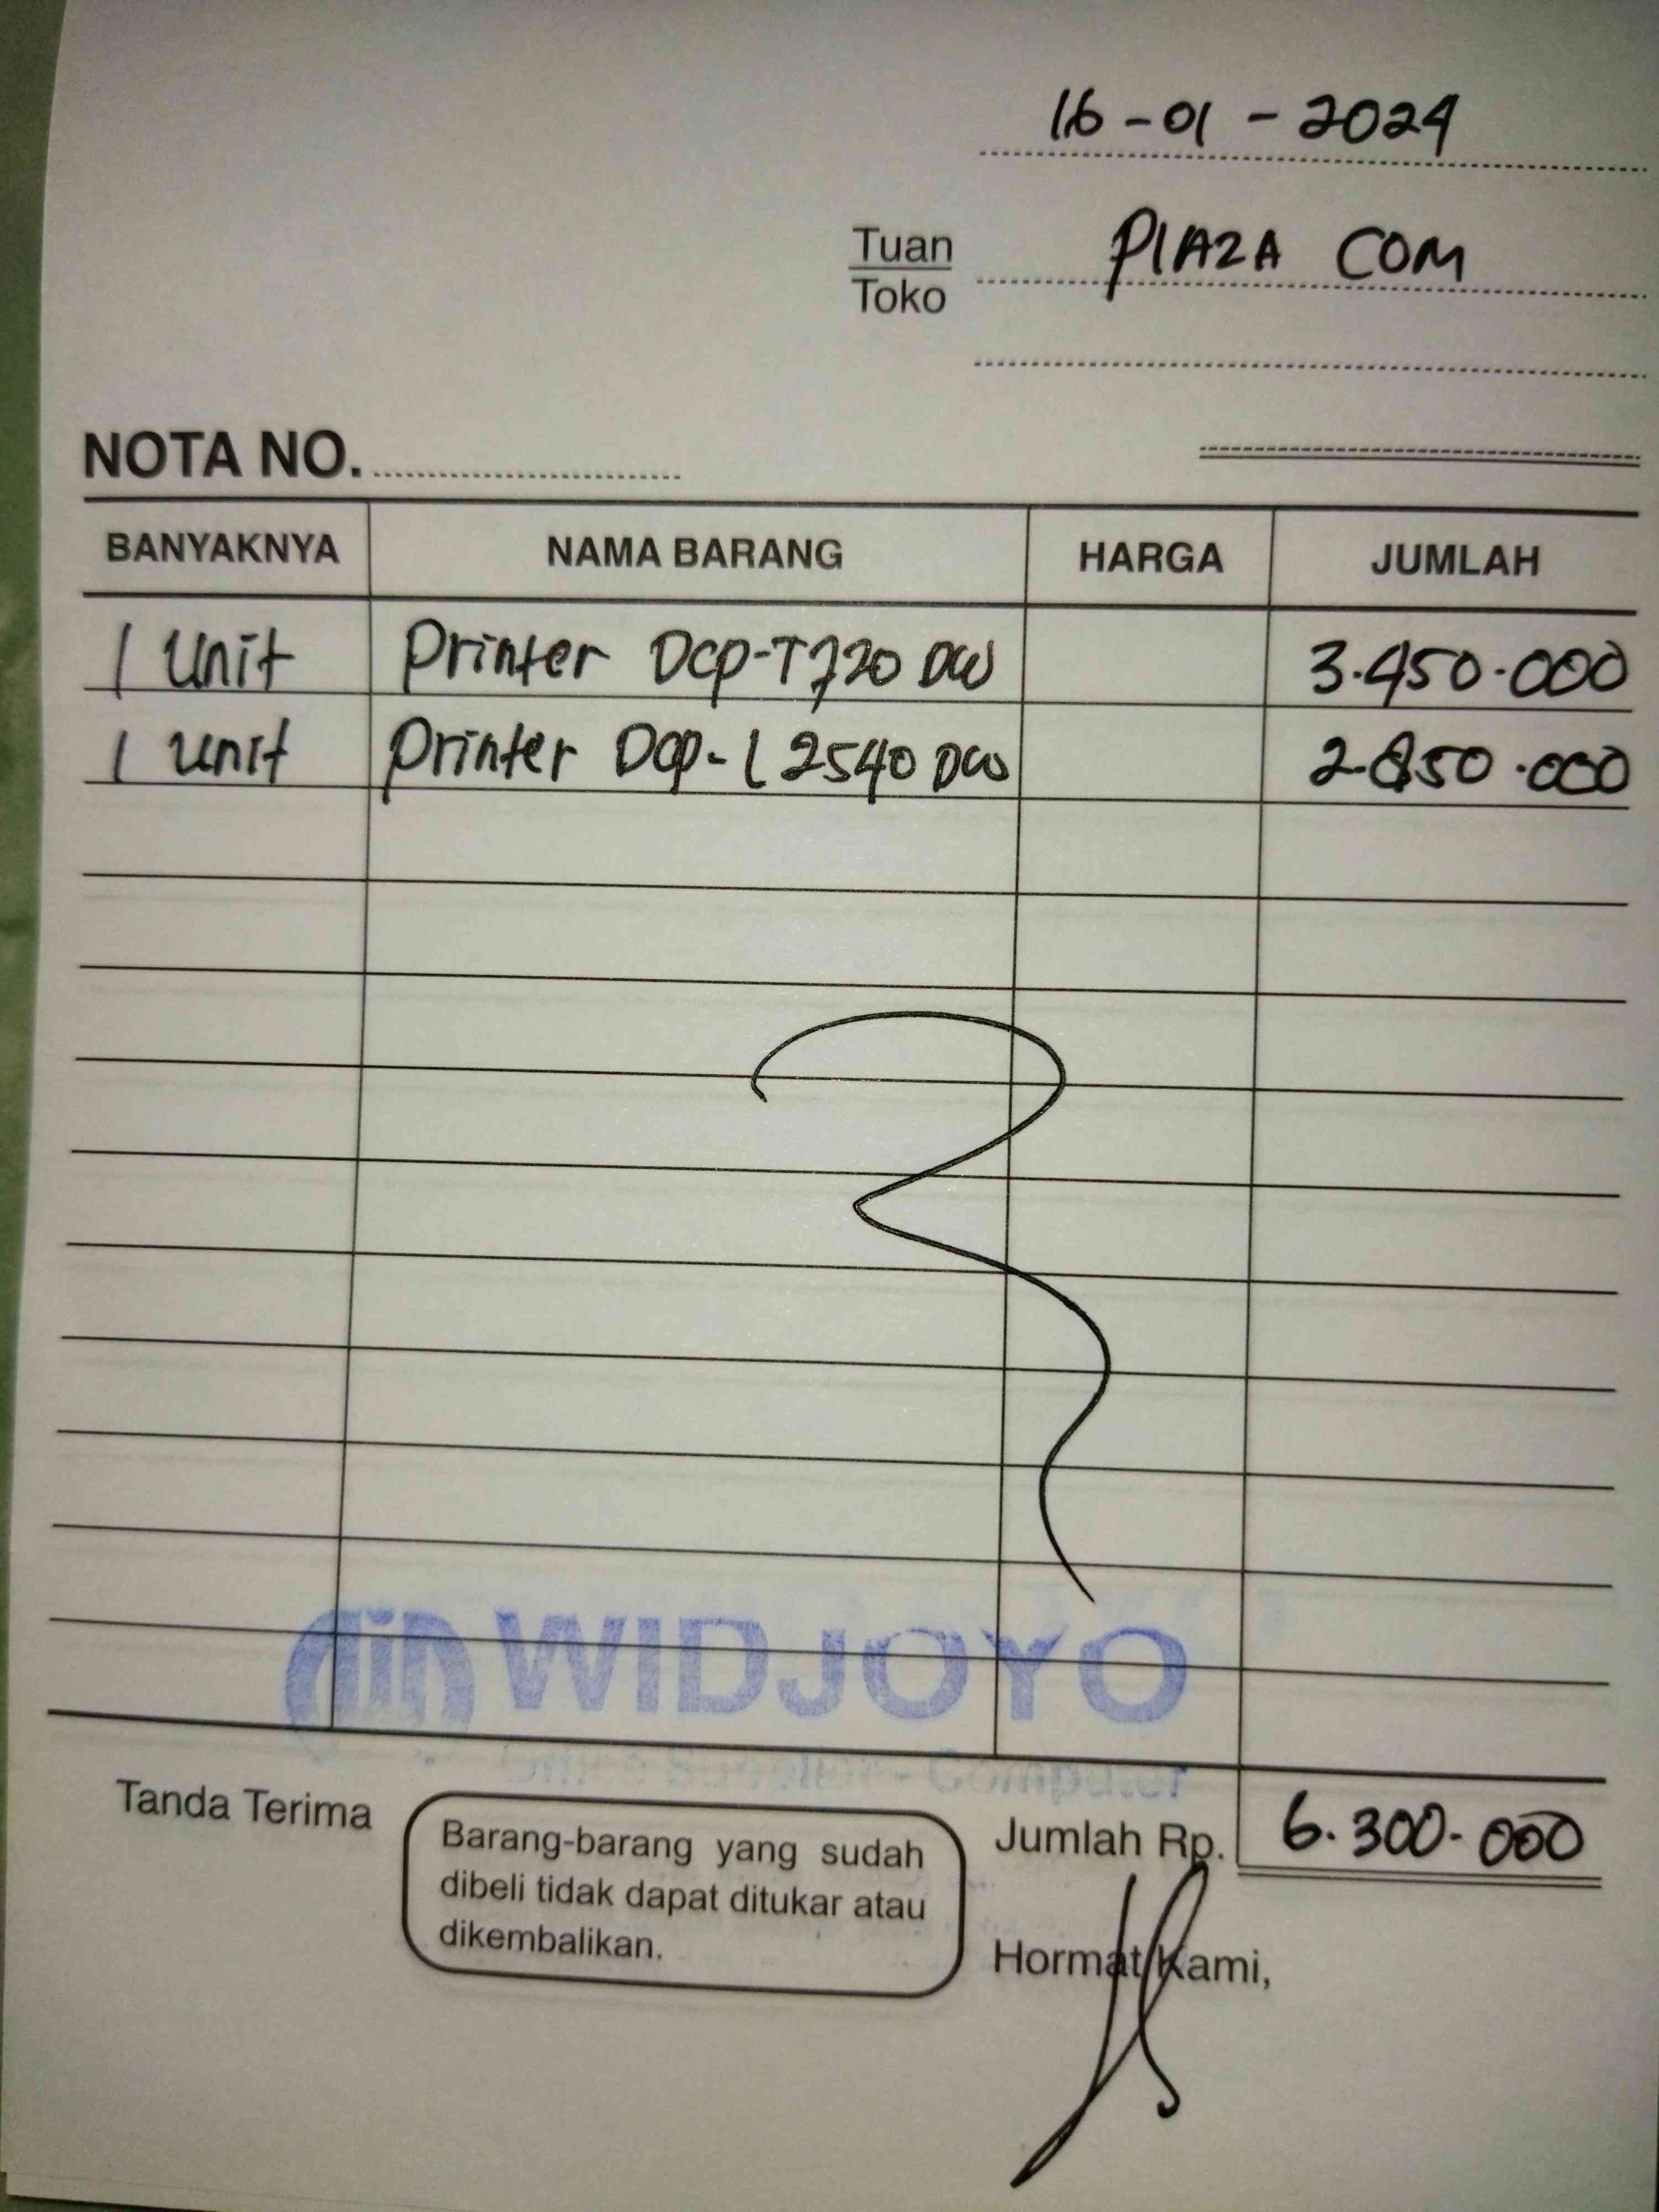 16-01-2024
Tuan
Toko
PLAZA COM
NOTA NO.
BANYAKNYA NAMA BARANG HARGA JUMLAH
1 Unit Printer Dcp-T720 DW 3.450.000
1 Unit Printer Dcp-L2540 DW 2.850.000
WIDJOYO
Computer
Tanda Terima
Barang-barang yang sudah
dibeli tidak dapat ditukar atau
dikembalikan.
Jumlah Rp. 6.300.000
Hormat Kami,